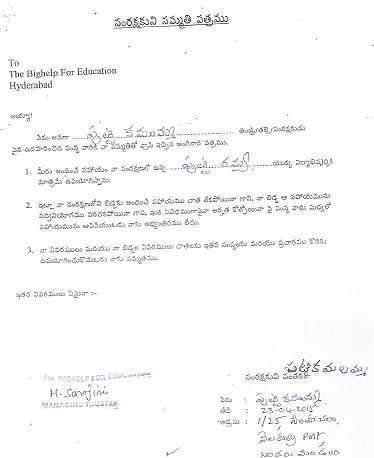 సంరక్షకుని సమ్మతి పత్రము
To
The Bighelp For Education
Hyderabad
అయ్యా!
నేను అనగా ........ కమలమ్మ ........ తండ్రి/తల్లి/సంరక్షకుడు
పైన ఉదహరించిన సంస్థ వారికి నా సమ్మతితో వ్రాసి ఇచ్చిన అంగీకార పత్రము.
1. మీరు అందించే సహాయం నా సంరక్షణలో ఉన్న ........ రమ్య ........ యొక్క విద్యాభివృద్ధికి
మాత్రమే ఉపయోగిస్తాను.
2. ఇట్లా నా సంరక్షణలోని బిడ్డకు అందించే సహాయము దాత లేకపోయినా గాని, నా బిడ్డ ఆ సహాయమును
సద్వినియోగము పరచకపోయినా గాని, ఇంక ఏవిధముగానైనా అర్హత కోల్పోయినా పై సంస్థ వారు మధ్యలో
సహాయమును ఆపివేయుటకు నాకు అభ్యంతరము లేదు.
3. నా వివరములు మరియు నా బిడ్డల వివరములు దాతలకు ఇతర సంస్థలకు మరియు ప్రచారము కొరకు
ఉపయోగించుకొనుటకు నాకు సమ్మతము.
ఇతర వివరములు ఏమైనా :-
For BIGHELP FOR EDUCATION
M. Sarojini
MANAGING TRUSTEE
కమలమ్మ
సంరక్షకుని సంతకం
పేరు : కమలమ్మ
తేది : 23-04-2015
అడ్రసు : 1/25
Post